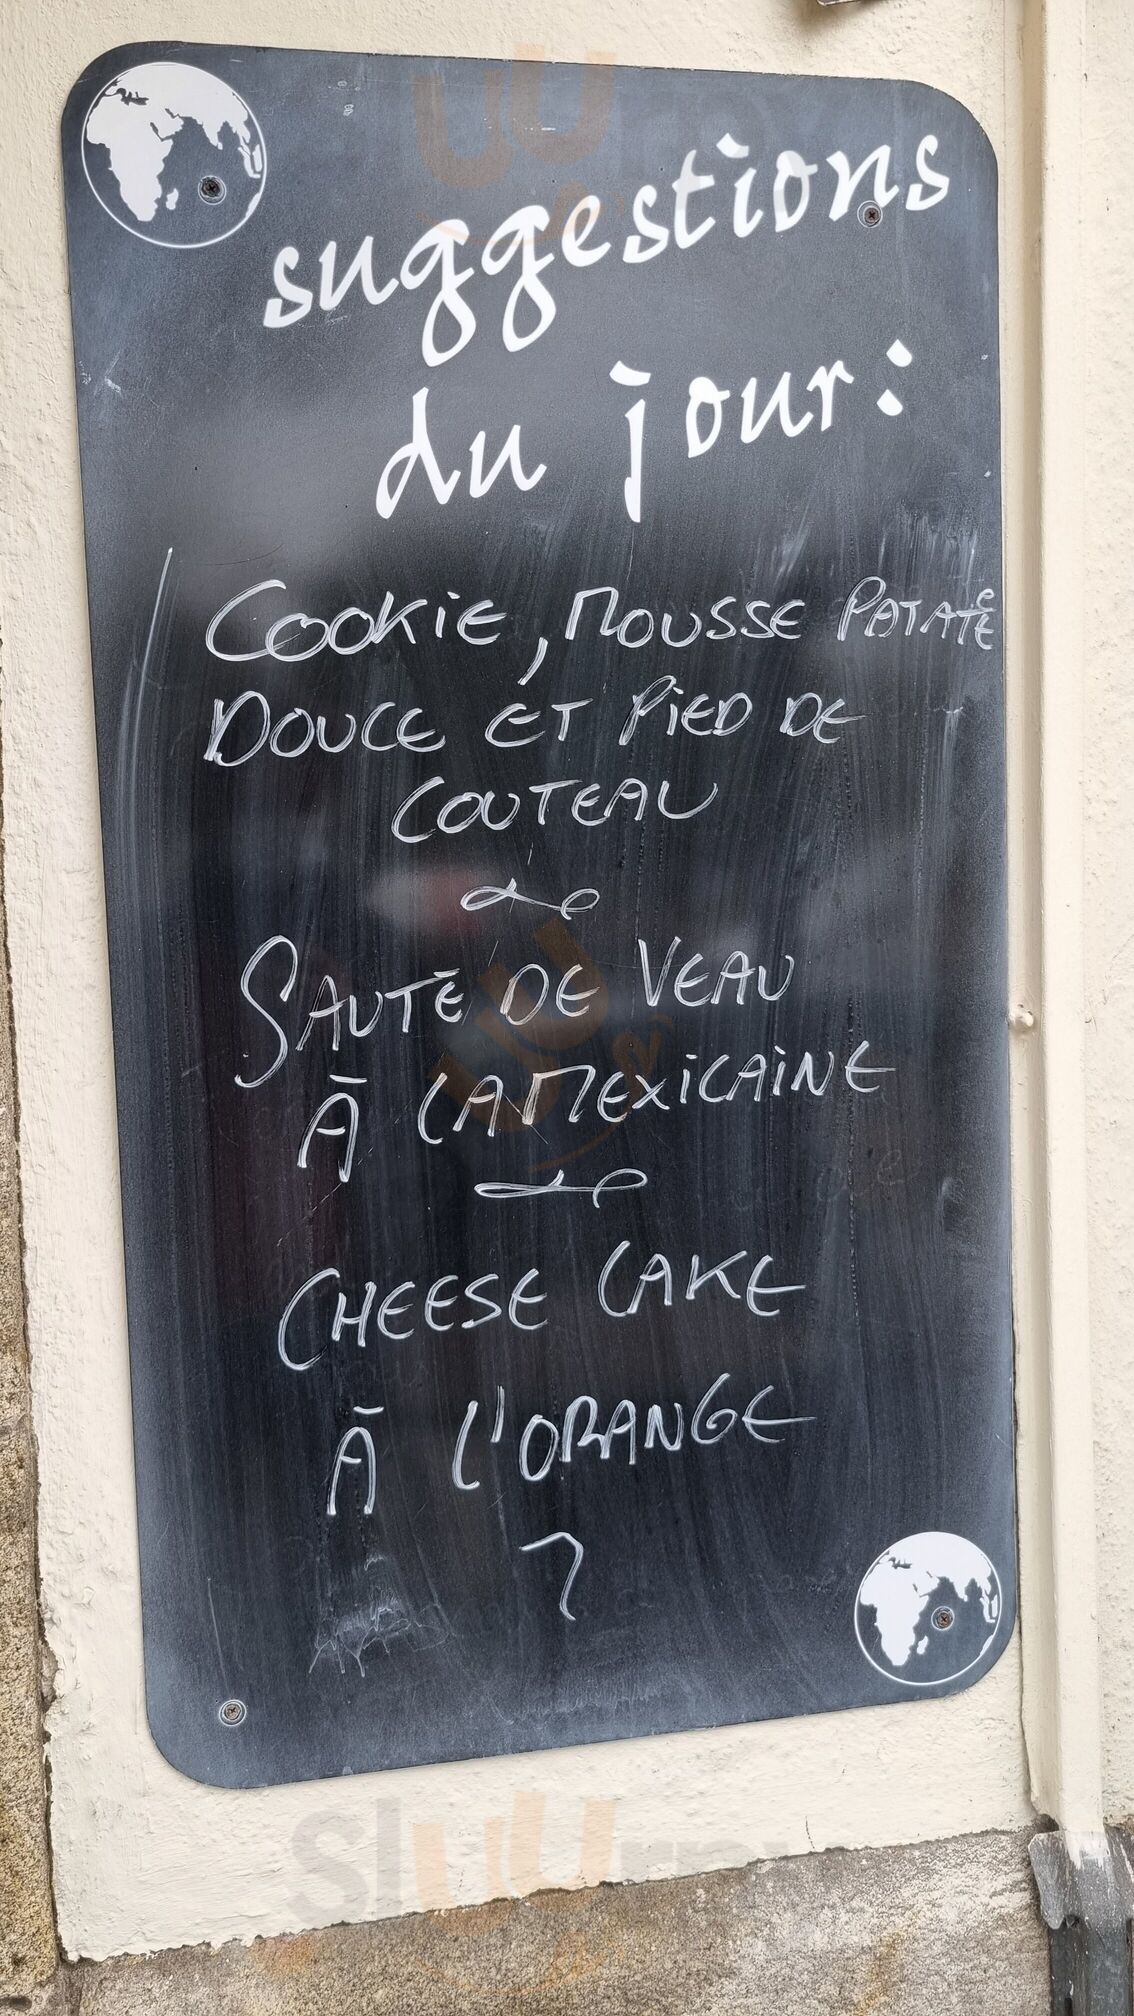 suggestions
du jour:
COOKIE, MOUSSE PATATE
DOUCE ET PIED DE
COUTEAU
SAUTÉ DE VEAU
À LA MEXICAINE
CHEESE CAKE
À L'ORANGE